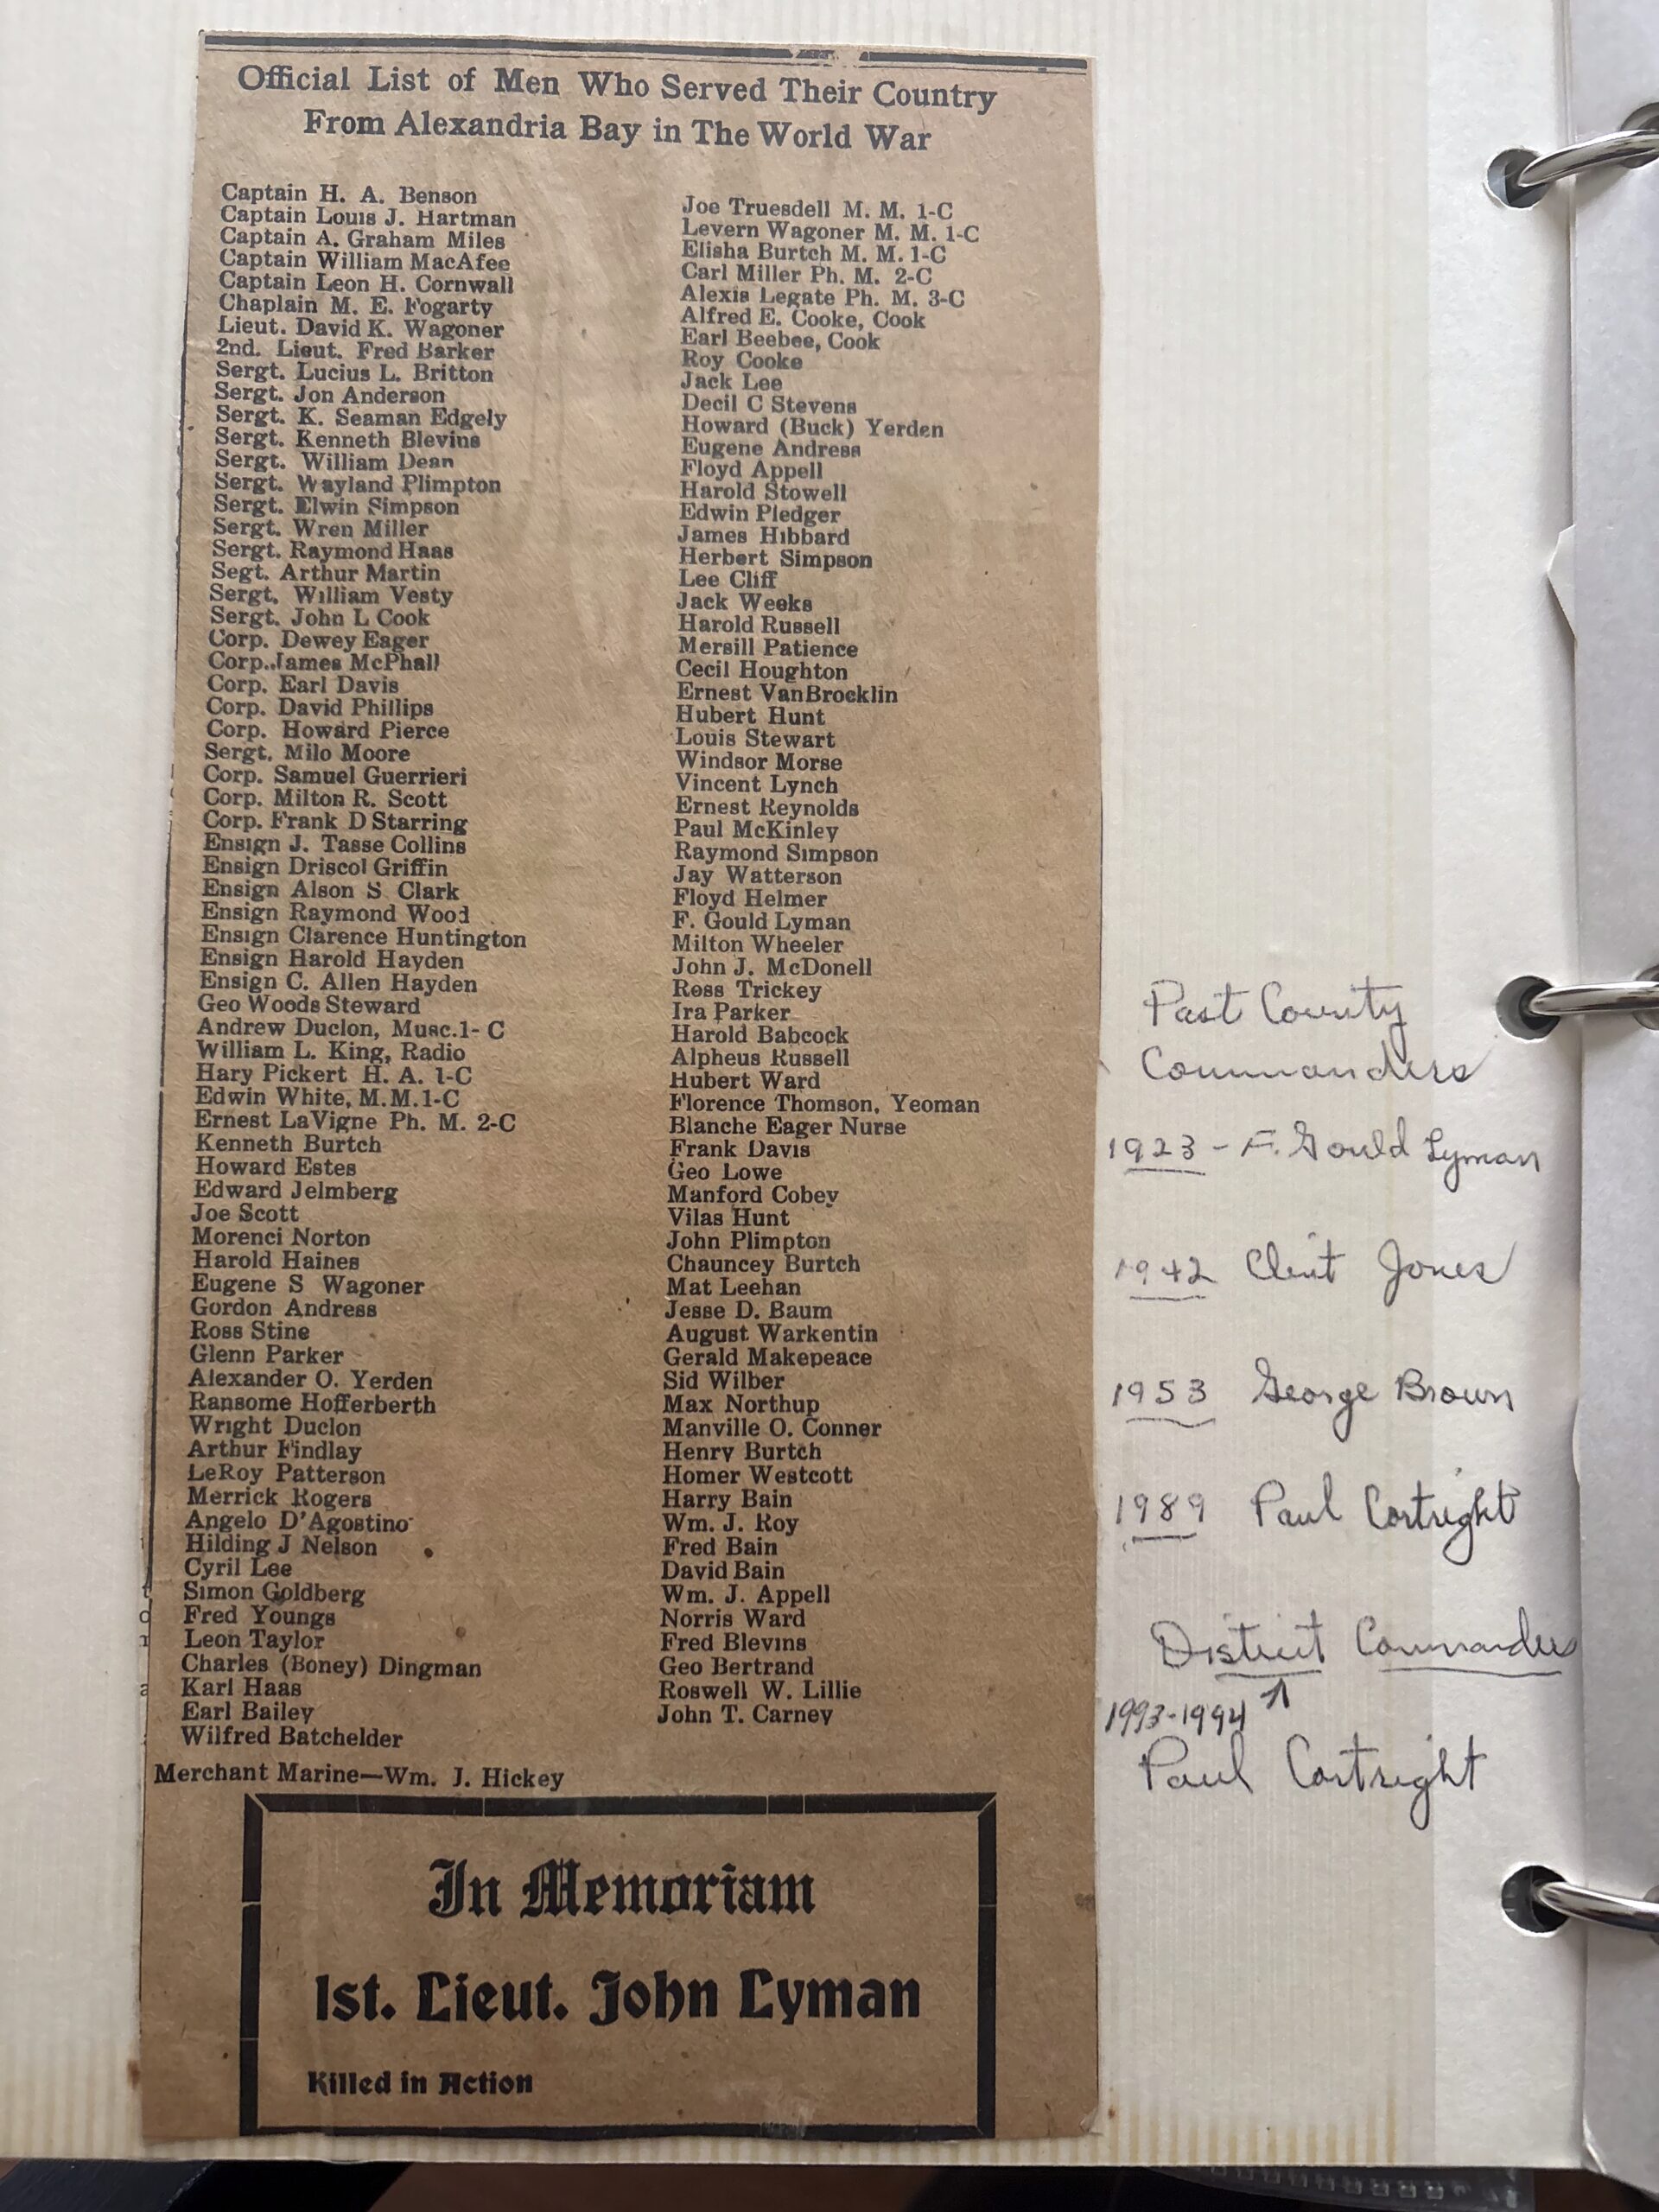 Official List of Men Who Served Their Country
From Alexandria Bay in The World War
Captain H. A. Benson
Captain Louis J. Hartman
Captain A. Graham Miles
Captain William MacAfee
Captain Leon H. Cornwall
Chaplain M. E. Fogarty
Lieut. David K. Wagoner
2nd. Lieut. Fred Barker
Sergt. Lucius L. Britton
Sergt. Jon Anderson
Sergt. K. Seaman Edgely
Sergt. Kenneth Blevins
Sergt. William Dean
Sergt. Wayland Plimpton
Sergt. Elwin Simpson
Sergt. Wren Miller
Sergt. Raymond Haas
Segt. Arthur Martin
Sergt. William Vesty
Sergt. John L Cook
Corp. Dewey Eager
Corp. James McPhall
Corp. Earl Davis
Corp. David Phillips
Corp. Howard Pierce
Sergt. Milo Moore
Corp. Samuel Guerrieri
Corp. Milton R. Scott
Corp. Frank D Starring
Ensign J. Tasse Collins
Ensign Driscol Griffin
Ensign Alson S Clark
Ensign Raymond Wood
Ensign Clarence Huntington
Ensign Harold Hayden
Ensign C. Allen Hayden
Geo Woods Steward
Andrew Duclon, Musc.1- C
William L. King, Radio
Hary Pickert H. A. 1-C
Edwin White, M.M.1-C
Ernest LaVigne Ph. M. 2-C
Kenneth Burtch
Howard Estes
Edward Jelmberg
Joe Scott
Morenci Norton
Harold Haines
Eugene S Wagoner
Gordon Andress
Ross Stine
Glenn Parker
Alexander O. Yerden
Ransome Hofferberth
Wright Duclon
Arthur Findlay
LeRoy Patterson
Merrick Rogers
Angelo D'Agostino
Hilding J Nelson
Cyril Lee
Simon Goldberg
Fred Youngs
Leon Taylor
Charles (Boney) Dingman
Karl Haas
Earl Bailey
Wilfred Batchelder
Joe Truesdell M. M. 1-C
Levern Wagoner M. M. 1-C
Elisha Burtch M. M. 1-C
Carl Miller Ph. M. 2-C
Alexis Legate Ph. M. 3-C
Alfred E. Cooke, Cook
Earl Beebee, Cook
Roy Cooke
Jack Lee
Decil C Stevens
Howard (Buck) Yerden
Eugene Andress
Floyd Appell
Harold Stowell
Edwin Pledger
James Hibbard
Herbert Simpson
Lee Cliff
Jack Weeks
Harold Russell
Mersill Patience
Cecil Houghton
Ernest VanBrocklin
Hubert Hunt
Louis Stewart
Windsor Morse
Vincent Lynch
Ernest Reynolds
Paul McKinley
Raymond Simpson
Jay Watterson
Floyd Helmer
F. Gould Lyman
Milton Wheeler
John J. McDonell
Ross Trickey
Ira Parker
Harold Babcock
Alpheus Russell
Hubert Ward
Florence Thomson, Yeoman
Blanche Eager Nurse
Frank Davis
Geo Lowe
Manford Cobey
Vilas Hunt
John Plimpton
Chauncey Burtch
Mat Leehan
Jesse D. Baum
August Warkentin
Gerald Makepeace
Sid Wilber
Max Northup
Manville O. Conner
Henry Burtch
Homer Westcott
Harry Bain
Wm. J. Roy
Fred Bain
David Bain
Wm. J. Appell
Norris Ward
Fred Blevins
Geo Bertrand
Roswell W. Lillie
John T. Carney
Merchant Marine—Wm. J. Hickey
In Memoriam
1st. Lieut. John Lyman
Killed in Action
Past County
Commanders
1923 - F. Gould Lyman
1942 Clint Jones
1953 George Brown
1989 Paul Cortright
District Commander
1993-1994
Paul Cortright